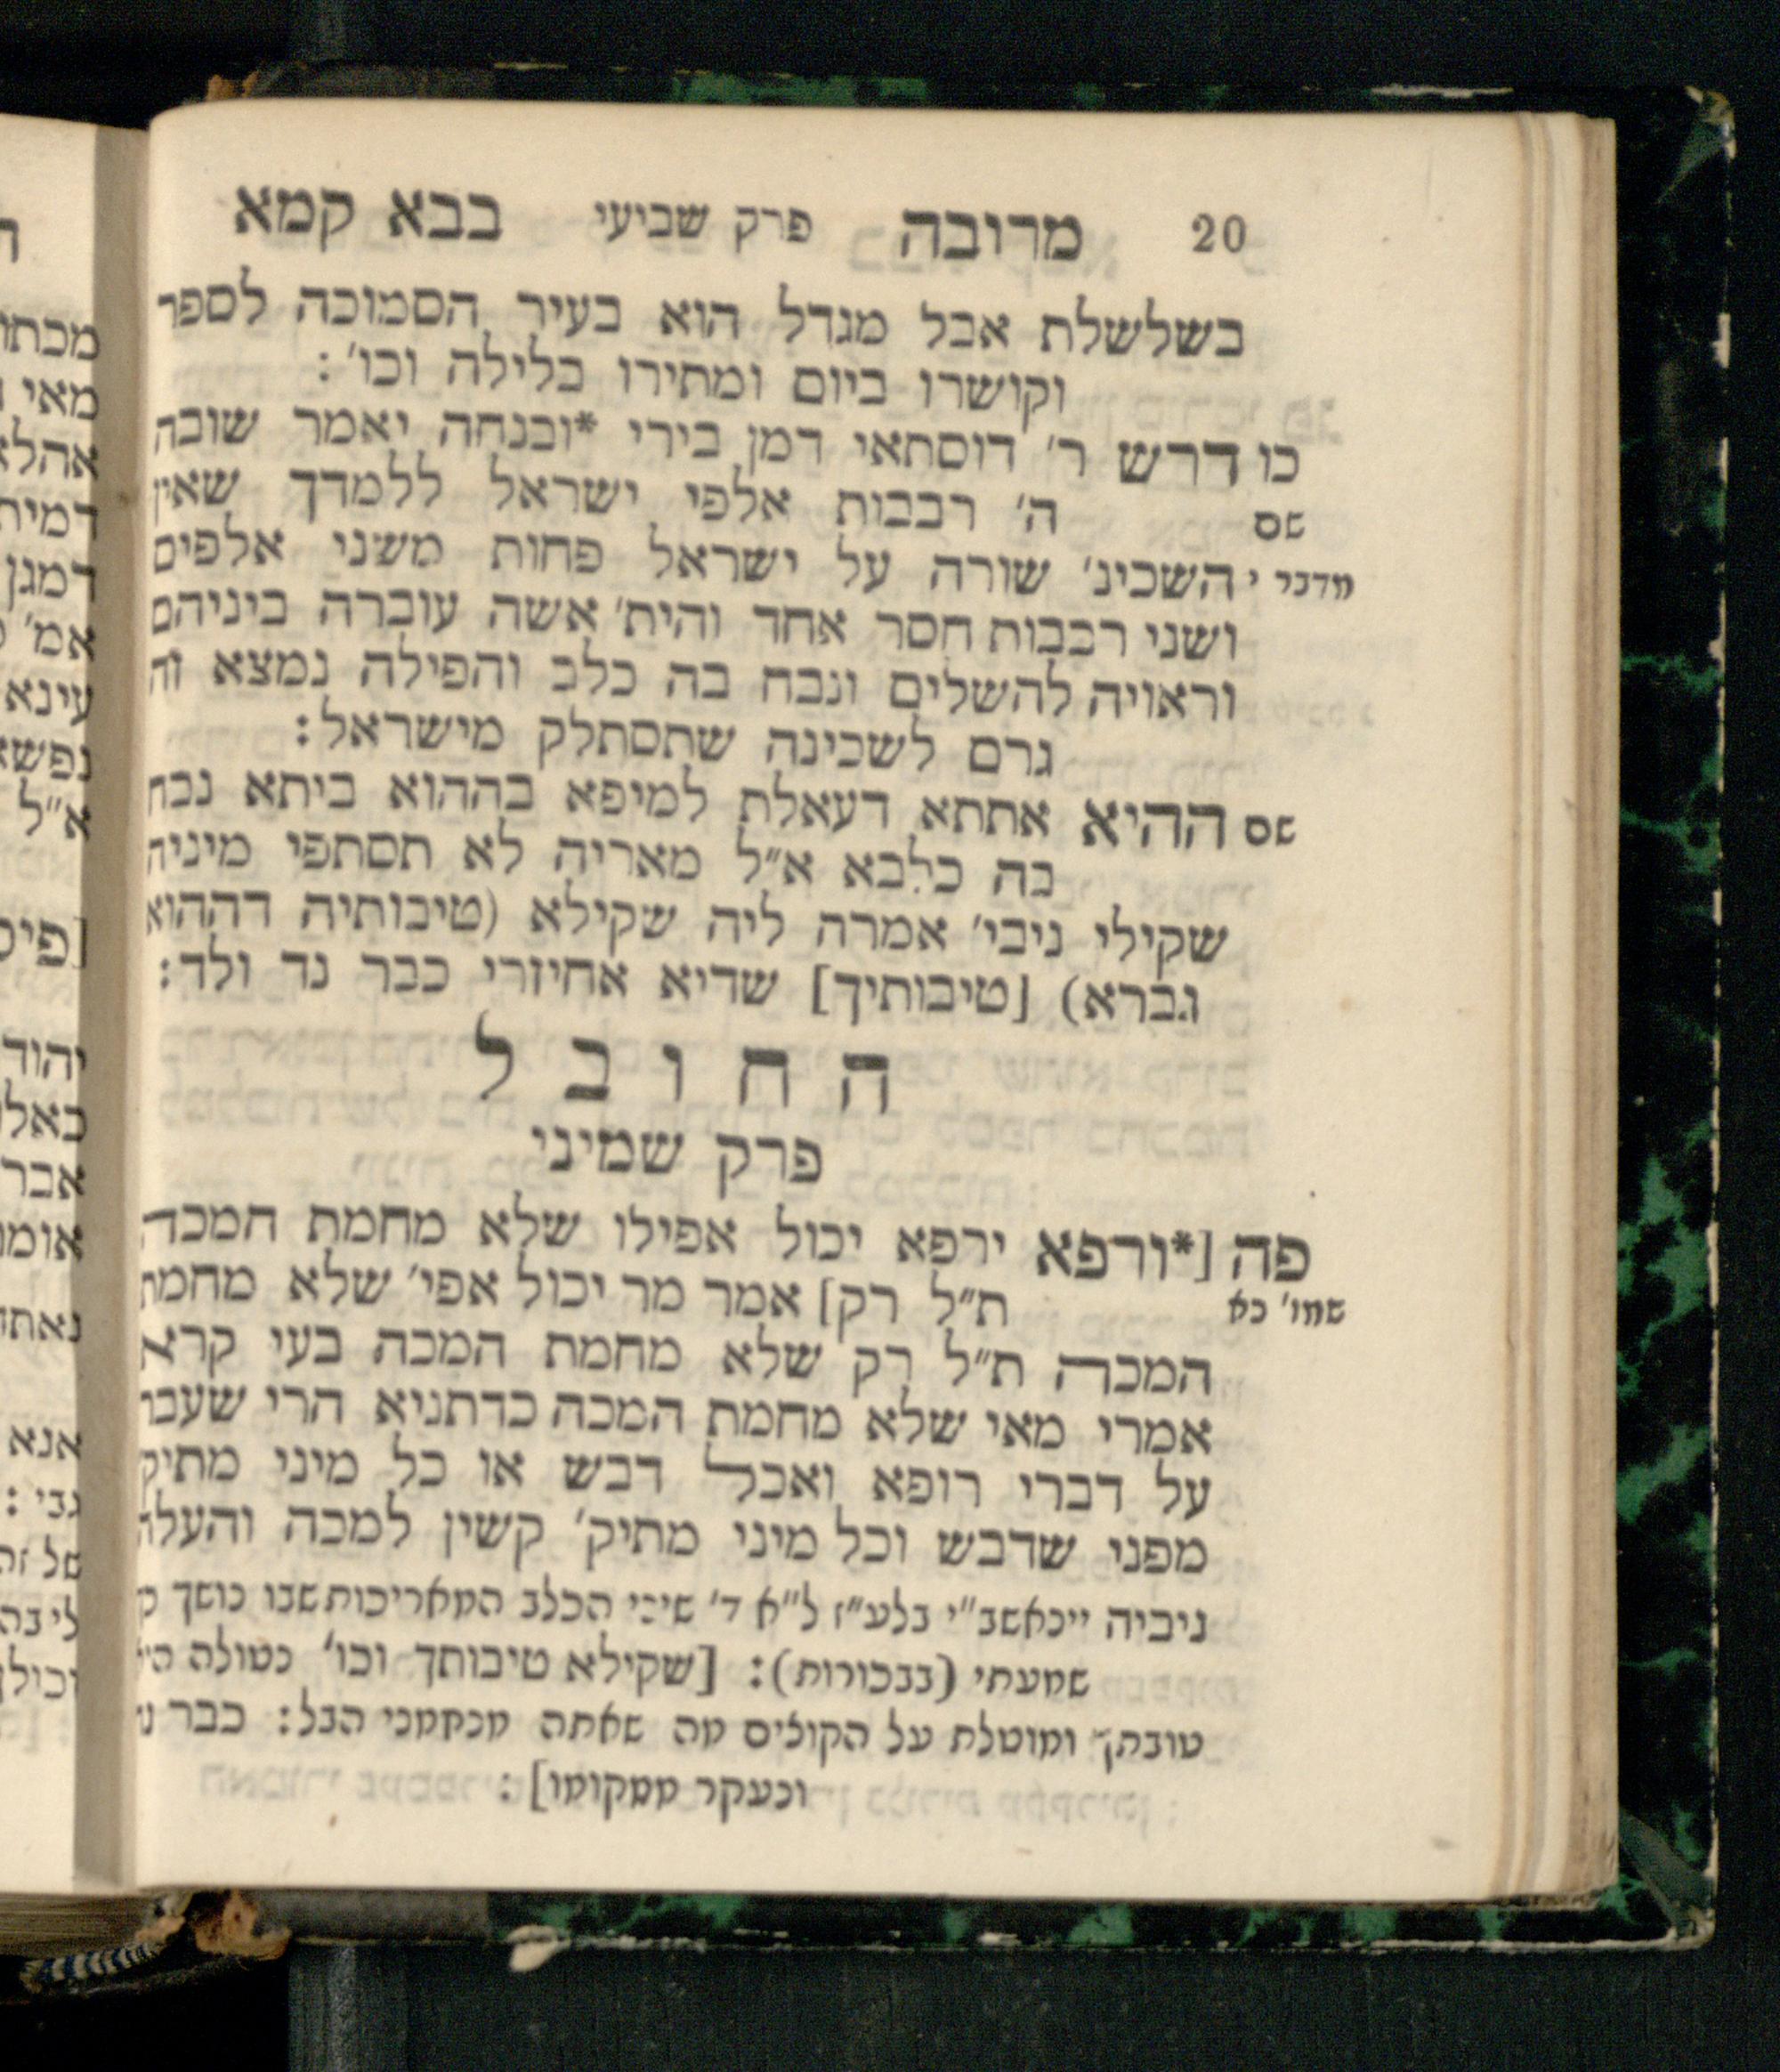 20 מרובה פרק שביעי בבא קמא
בשלשלת אבל מגדל הוא בעיר הסמוכה לספר
וקושרו ביום ומתירו בלילה וכו׳ :
כו דרש ר׳ דוסתאי דמן בירי *ובנחה יאמר שובה
שם ה׳ רבבות אלפי ישראל ללמדך שאין
מדבר י השכינ׳ שורה על ישראל פחות משני אלפים
ושני רבבות חסר אחד והית׳ אשה עוברה ביניהם
וראויה להשלים ונבח בה כלב והפילה נמצא זה
גרם לשכינה שתסתלק מישראל:
שם ההיא אתתא דעאלת למיפא בההוא ביתא נבח
בה כלבא א״ל מאריה לא תסתפי מיניה
שקילי ניבי׳ אמרה ליה שקילא (טיבותיה דההוא
גברא) [טיבותיך] שדיא אחיזרי כבר נד ולד:
החובל
פרק שמיני
פה [*ורפא ירפא יכול אפילו שלא מחמת המכה
שמו׳ כא ת״ל רק] אמר מר יכול אפי׳ שלא מחמת
המכה ת״ל רק שלא מחמת המכה בעי קרא
אמרי מאי שלא מחמת המכה כדתניא הרי שעבר
על דברי רופא ואכל דבש או כל מיני מתיק
מפני שדבש וכל מיני מתיק׳ קשין למכה והעלה
ניביה ייכאשב״י בלע״ז ל״א ד׳ שיני הכלב המאריכות שבו נושך
שמעתי (בבכורות): [שקילא טיבותך וכו׳ נטולה
טובתך ומוטלת על הקוצים מה שאתה מנחמני הבל: כבר
ונעקר ממקומו] :